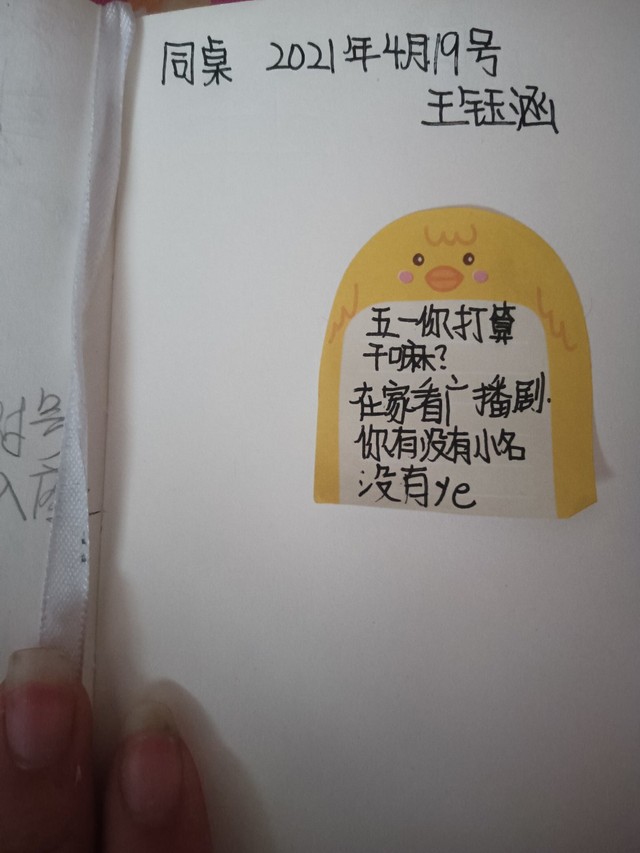 同桌 2021年4月19号
王钰涵
五一你打算
干嘛?
在家看广播剧.
你有没有小名
没有ye